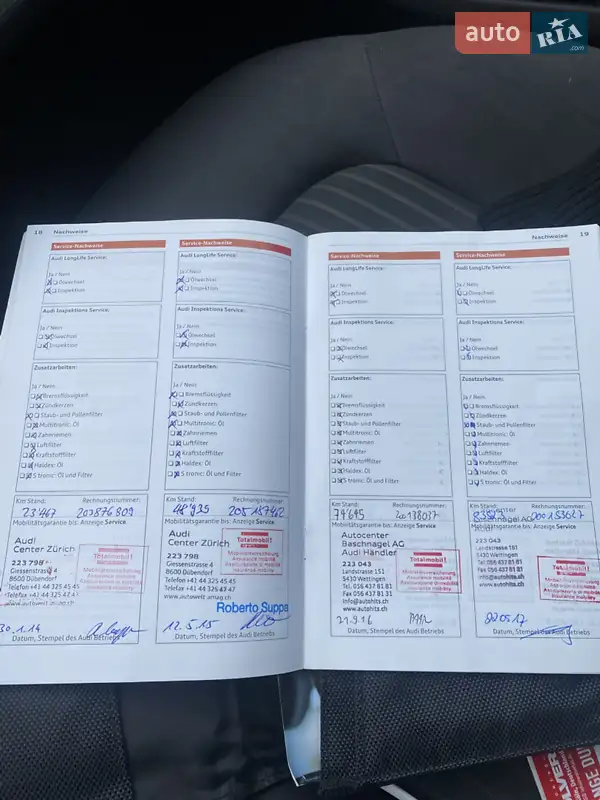 auto RIA .com
18 Nachweise
Service-Nachweise
Audi LongLife Service:
Ja / Nein
Ölwechsel
Inspektion
Audi Inspektions Service:
Ja / Nein
Ölwechsel
Inspektion
Zusatzarbeiten:
Ja / Nein
Bremsflüssigkeit
Zündkerzen
Staub- und Pollenfilter
Multitronic: Öl
Zahnriemen
Luftfilter
Kraftstofffilter
Haldex: Öl
S tronic: Öl und Filter
Km Stand: Rechnungsnummer:
23'447 207876809
Mobilitätsgarantie bis: Anzeige Service
Audi
Center Zürich
223 798
Giessenstrasse 4
8600 Dübendorf
Telefon +41 44 325 45 45
Telefax +41 44 325 47 47
www.autowelt.amag.ch
Totalmobil!
Mobilitätsversicherung
Assurance mobilité
Assicurazione di mobilità
Insurance mobility
30.1.14
Datum, Stempel des Audi Betriebs
Service-Nachweise
Audi LongLife Service:
Ja / Nein
Ölwechsel
Inspektion
Audi Inspektions Service:
Ja / Nein
Ölwechsel
Inspektion
Zusatzarbeiten:
Ja / Nein
Bremsflüssigkeit
Zündkerzen
Staub- und Pollenfilter
Multitronic: Öl
Zahnriemen
Luftfilter
Kraftstofffilter
Haldex: Öl
S tronic: Öl und Filter
Km Stand: Rechnungsnummer:
48'935 205157462
Mobilitätsgarantie bis: Anzeige Service
Audi
Center Zürich
223 798
Giessenstrasse 4
8600 Dübendorf
Telefon +41 44 325 45 45
Telefax +41 44 325 47 47
www.autowelt.amag.ch
Totalmobil!
Mobilitätsversicherung
Assurance mobilité
Assicurazione di mobilità
Insurance mobility
Roberto Suppa
12.5.15
Datum, Stempel des Audi Betriebs
Nachweise 19
Service-Nachweise
Audi LongLife Service:
Ja / Nein
Ölwechsel
Inspektion
Audi Inspektions Service:
Ja / Nein
Ölwechsel
Inspektion
Zusatzarbeiten:
Ja / Nein
Bremsflüssigkeit
Zündkerzen
Staub- und Pollenfilter
Multitronic: Öl
Zahnriemen
Luftfilter
Kraftstofffilter
Haldex: Öl
S tronic: Öl und Filter
Km Stand: Rechnungsnummer:
20138037
Mobilitätsgarantie bis: Anzeige Service
Autocenter
Baschnagel AG
Audi Händler
223 043
Landstrasse 151
5430 Wettingen
Tel. 056 437 81 81
Fax 056 437 81 91
info@autohits.ch
www.autohits.ch
Totalmobil!
Mobilitätsversicherung
Assurance mobilité
Assicurazione di mobilità
Insurance mobility
21.9.16
Datum, Stempel des Audi Betriebs
Service-Nachweise
Audi LongLife Service:
Ja / Nein
Ölwechsel
Inspektion
Audi Inspektions Service:
Ja / Nein
Ölwechsel
Inspektion
Zusatzarbeiten:
Ja / Nein
Bremsflüssigkeit
Zündkerzen
Staub- und Pollenfilter
Multitronic: Öl
Zahnriemen
Luftfilter
Kraftstofffilter
Haldex: Öl
S tronic: Öl und Filter
Km Stand: Rechnungsnummer:
Mobilitätsgarantie bis: Anzeige Service
223 043
Landstrasse 151
5430 Wettingen
Tel. 056 437 81 81
Fax 056 437 81 91
info@autohits.ch
www.autohits.ch
Totalmobil!
Datum, Stempel des Audi Betriebs